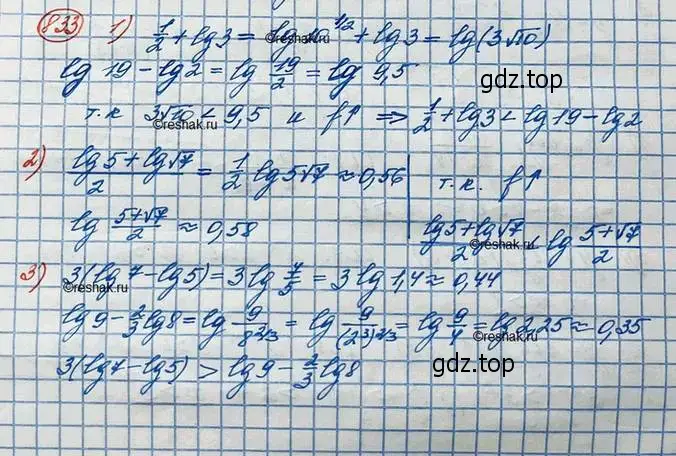 833 1) 1/2 + lg3 = lg 10^1/2 + lg3 = lg(3√10)
lg 19 - lg2 = lg 19/2 = lg 9,5
gdz.top
т.к 3√10 < 9,5 и f↑ ⇒ 1/2 + lg3 < lg19 - lg2
©reshak.ru ©reshak.ru
2) (lg5 + lg√7)/2 = 1/2 lg5√7 ≈ 0,56 т.к. f↑
lg (5+√7)/2 ≈ 0,58 (lg5 + lg√7)/2 < lg (5+√7)/2
©reshak.ru
3) 3(lg7 - lg5) = 3lg 7/5 = 3lg1,4 ≈ 0,44
©reshak.ru
lg9 - 2/3 lg8 = lg 9/8^2/3 = lg 9/(2^3)^2/3 = lg 9/4 = lg2,25 ≈ 0,35
3(lg7 - lg5) > lg9 - 2/3 lg8
gdz.top
©reshak.ru